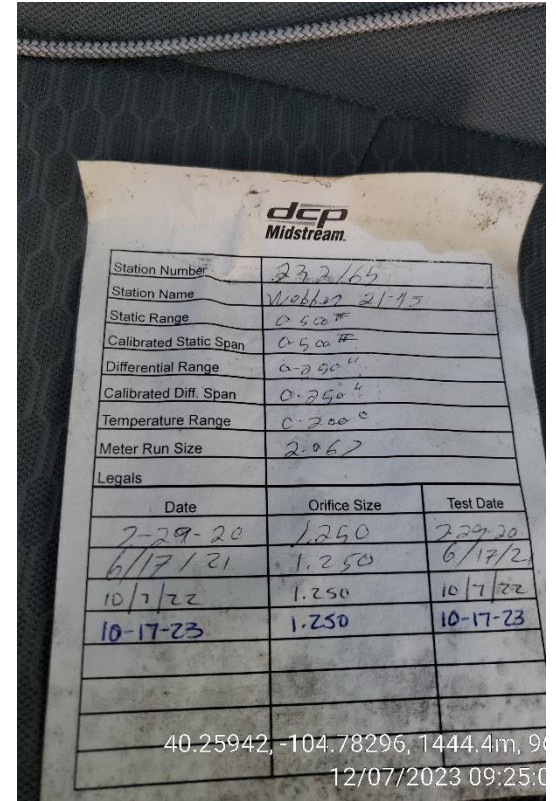 dcp
Midstream.
Station Number 232165
Station Name 21-45
Static Range 0-500#
Calibrated Static Span 0-500#
Differential Range 0-250"
Calibrated Diff. Span 0-250"
Temperature Range 0-200°
Meter Run Size 2.067
Legals
Date Orifice Size Test Date
7-29-20 1.250 7-29-20
6/17/21 1.250 6/17/2
10/7/22 1.250 10/7/22
10-17-23 1.250 10-17-23
40.25942, -104.78296, 1444.4m, 96
12/07/2023 09:25:0